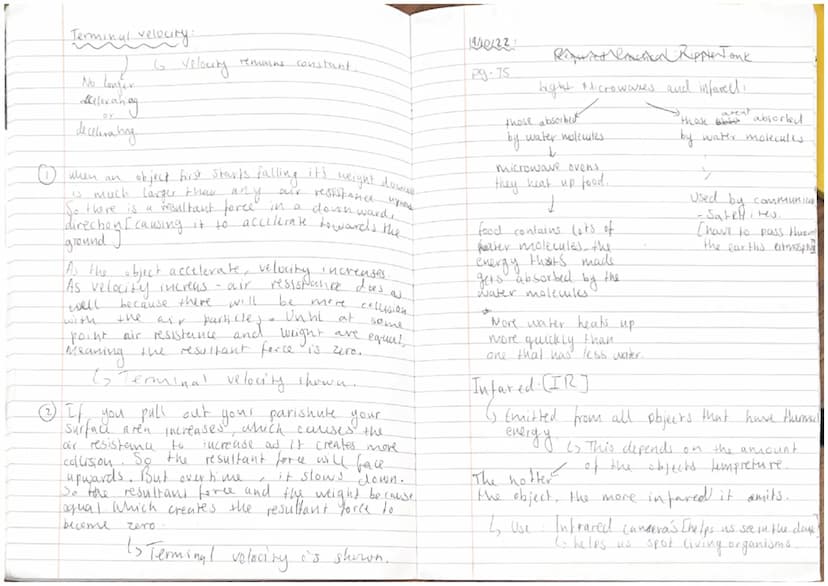 Terminal velocity:
↳ velocity remains constant.
No longer
decelerating
or
decelerating
① When an object first starts falling it's weight downw
is much larger than any air resistance
So there is a resultant force in a downwards
direction [causing it to accelerate towards the
ground]
As the object accelerate, velocity increases
As velocity increas - air resistance does as
well because there will be more collision
with the air particles. Until at some
point air resistance and weight are equal,
Meaning the resultant force is zero.
↳ Terminal velocity shown.
② If you pull out your parishute your
surface area increases, which causes the
air resistance to increase as it creates more
collision. So the resultant force will face
upwards. But overtime, it slows down.
So the resultant force and the weight because
equal which creates the resultant force to
become zero.
↳ Terminal velocity is shown.
Ripple Tank
pg. 75
Light Microwaves and infared:
those absorbed
by water molecules
↓
microwave ovens
they heat up food.
↓
food contains lots of
water molecules. the
energy thats made
gets absorbed by the
water molecules
* More water heats up
more quickly than
one that has less water.
those arent absorbed
by water molecules
Used by communica
- Satellites.
[have to pass throu
the earths atmosphe
Infared: [IR]
↳ Emitted from all objects that have thermal
energy
↳ This depends on the amount
of the objects tempreture.
The hotter
the object, the more infared it emits.
↳ Use: Infrared camera's [helps us see in the dark
↳ helps us spot living organisms.